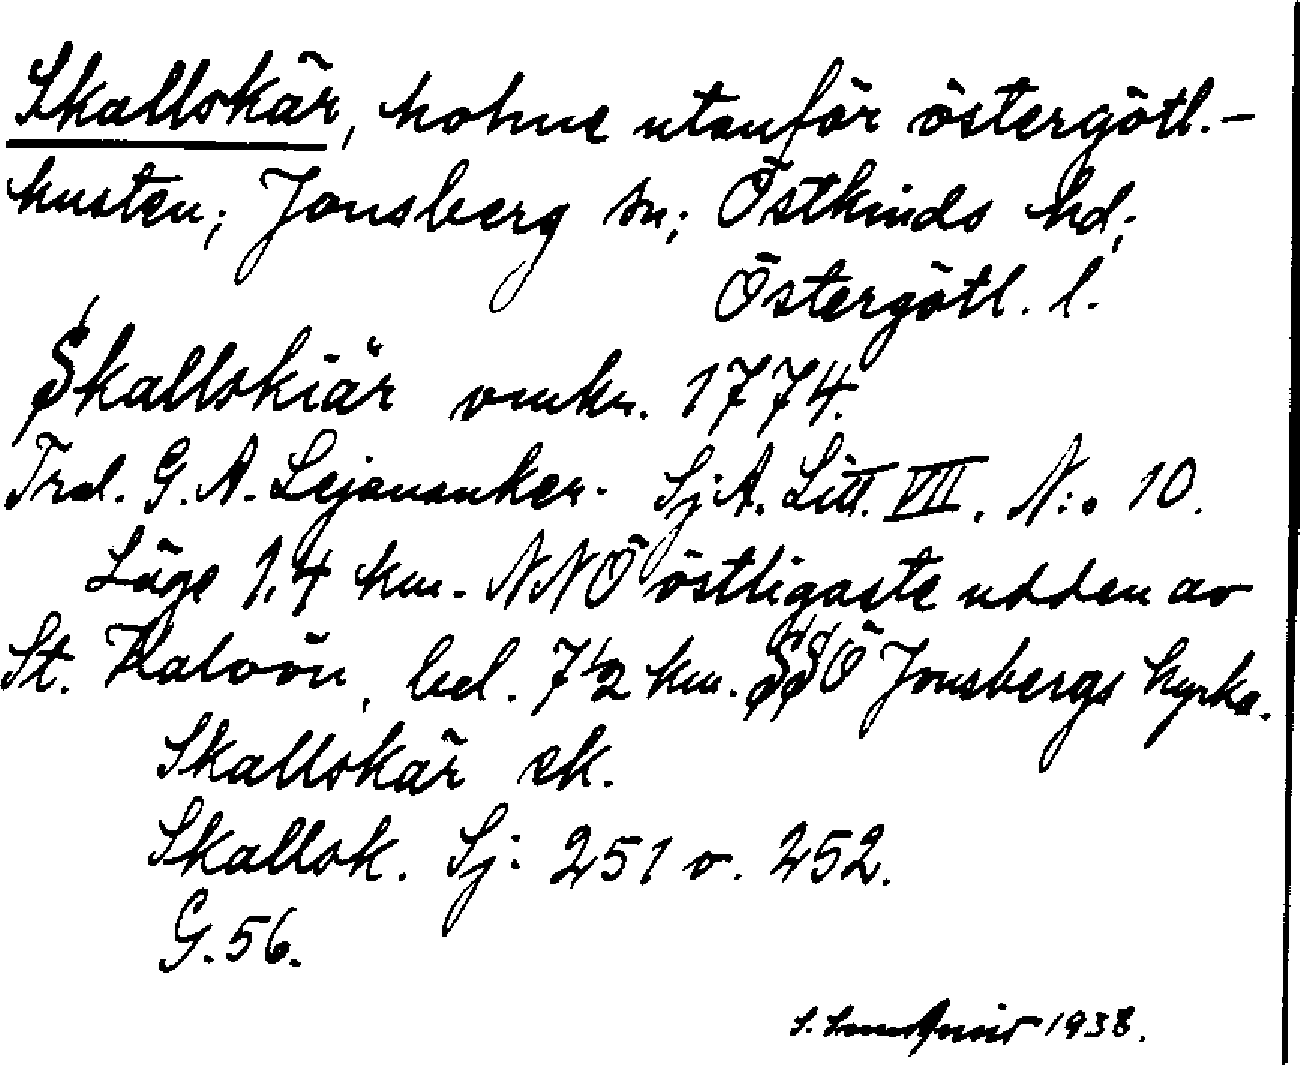 Skallskär, holme utanför östergötl.-
kusten; Jonsberg sn; Östkinds hd;
Östergötl. l.
Skallskiär omkr. 1774.
Trol. G. A. Lejonanker. Sj.A. Litt. VII. N:o 10.
Läge 1,4 km. NNÖ östligaste udden av
St. Kalvön, bel. 7½ km. SSÖ Jonsbergs kyrka.
Skallskär ek.
Skallsk. Sj: 251 o. 252.
G.56.
1938.